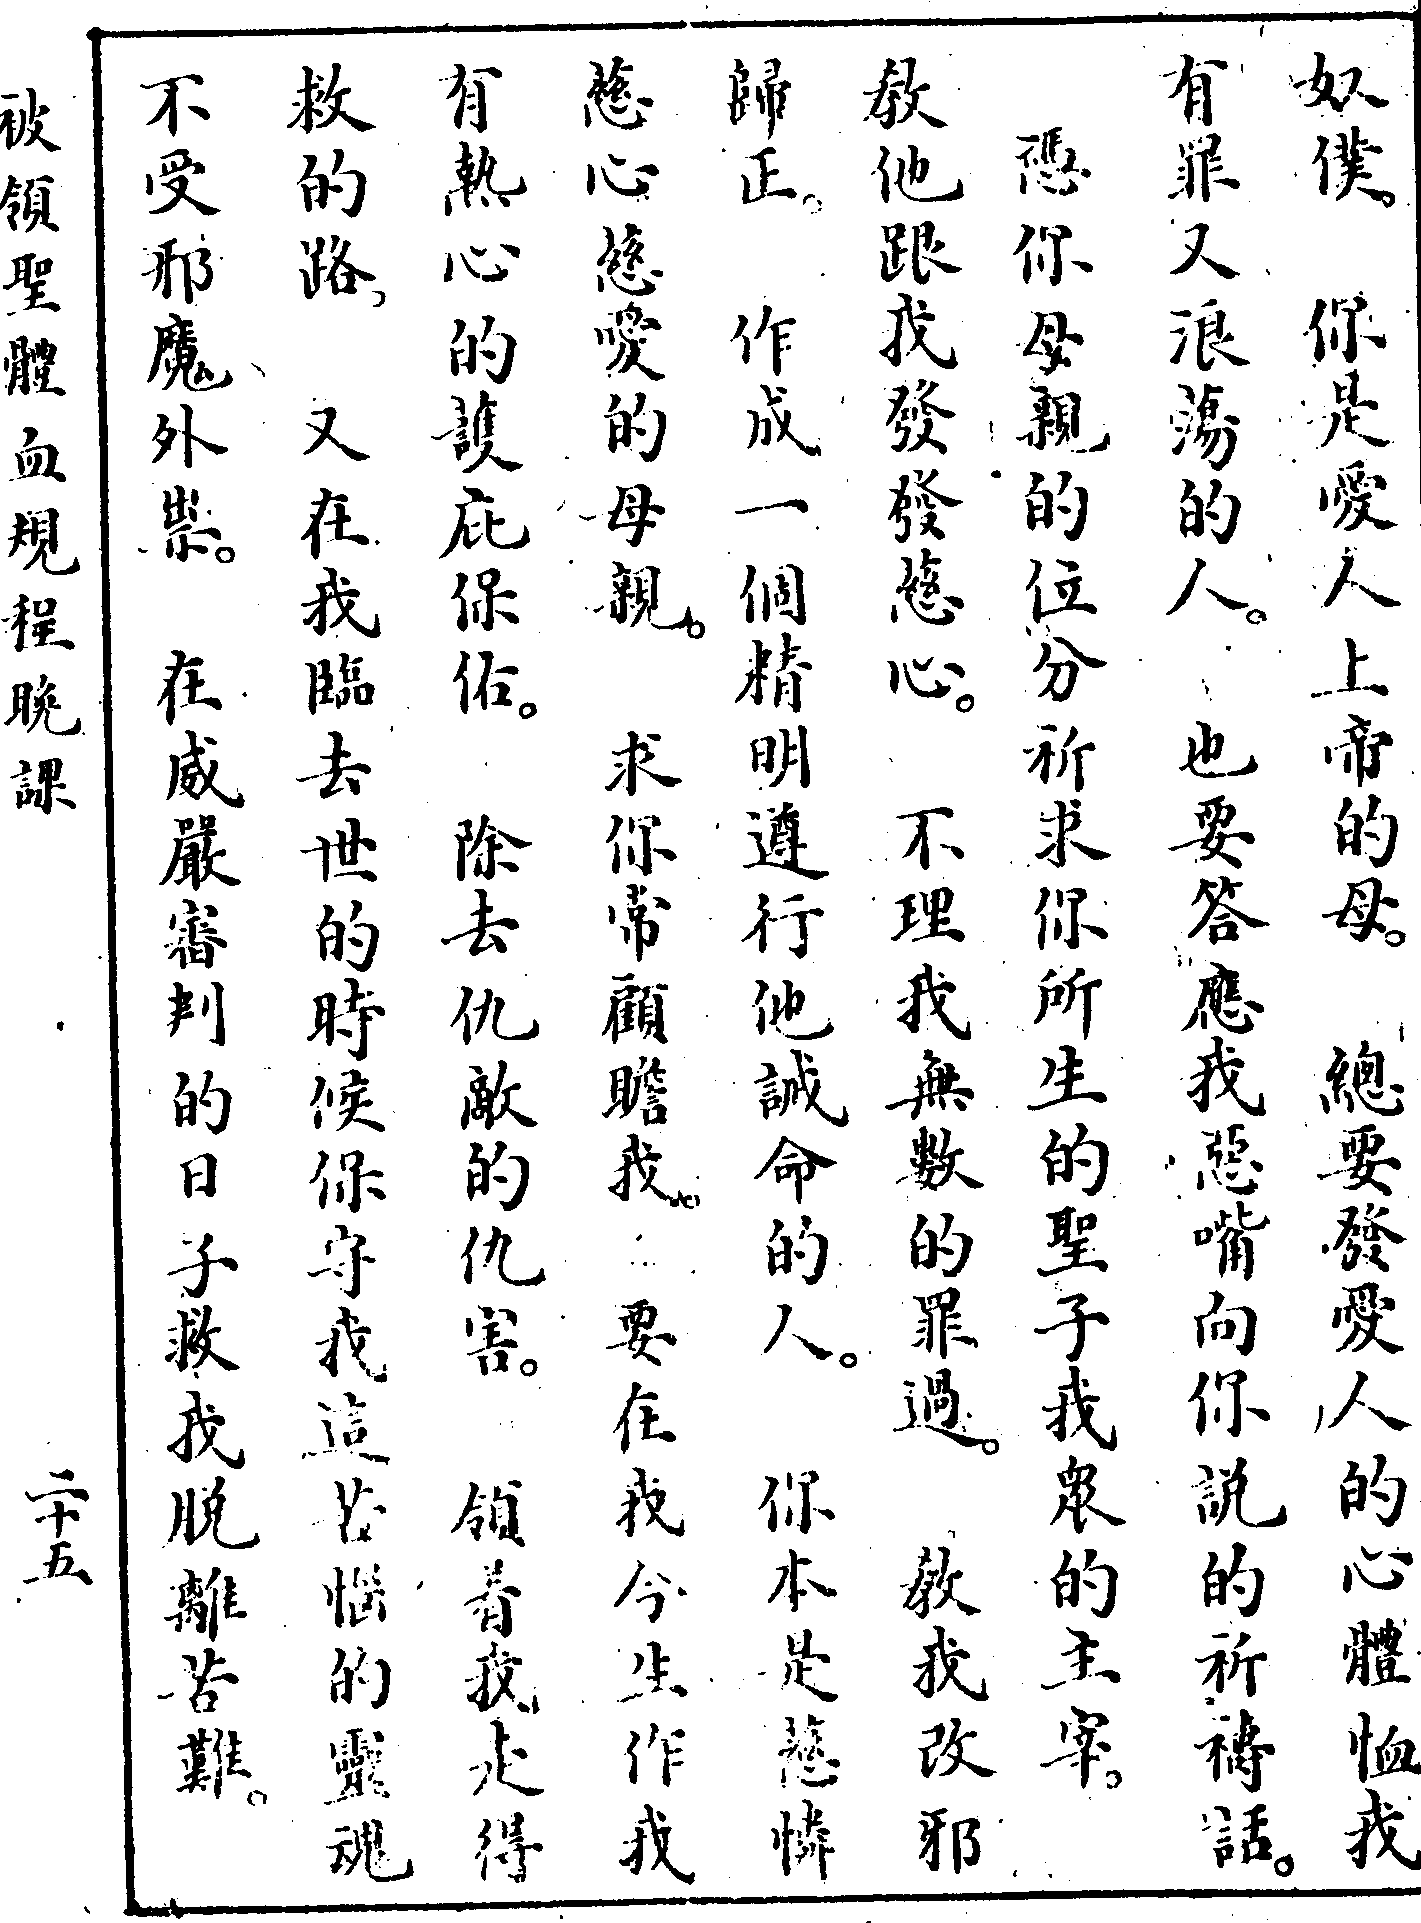 奴僕。　你是愛人上帝的母。　總要發愛人的心體恤我
有罪又浪蕩的人。　也要答應我惡嘴向你說的祈禱話。
憑你母親的位分祈求你所生的聖子我衆的主宰。
教他跟我發發慈心。　不理我無數的罪過。　教我改邪
歸正。　作成一個精明遵行他誡命的人。　你本是慈憐
慈心慈愛的母親。　求你常顧瞻我。　要在我今生作我
有熱心的護庇保佑。　除去仇敵的仇害。　領着我走得
救的路，　又在我臨去世的時候保守我這苦惱的靈魂
不受邪魔外祟。　在威嚴審判的日子救我脫離苦難。
被領聖體血規程晚課
二十五